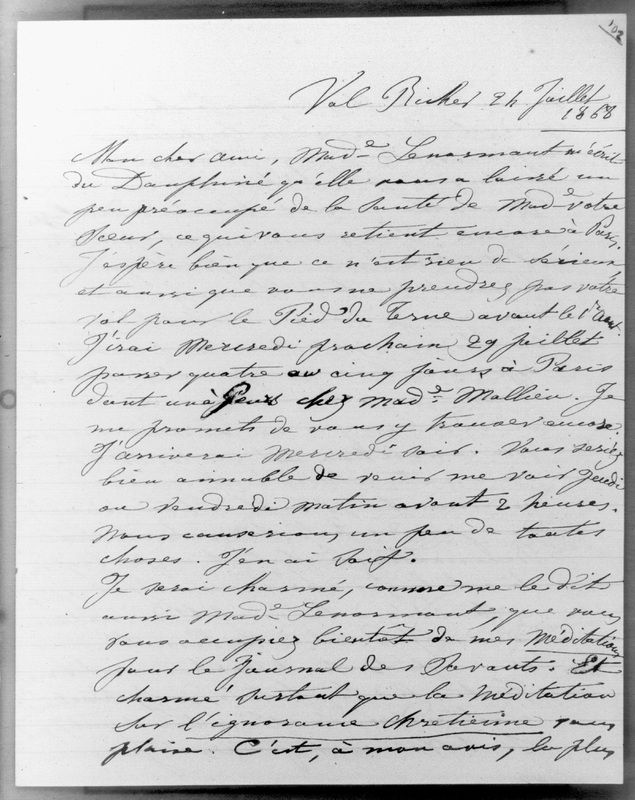 102
Val Richer 24 Juillet
1868
Mon cher ami, Made Lenormant m'écrit
du Dauphiné qu'elle vous a laissé un
peu préoccupé de la santé de Made votre
Sœur, ce qui vous retient encore à Paris.
J'espère bien que ce n'est rien de sérieux
et aussi que vous ne prendrez pas votre
vol pour le Pied du Terne avant le 1er Aout.
J'irai Mercredi prochain 29 Juillet
passer quatre ou cinq jours à Paris
dont un à deux chez Made Mollien. Je
me promets de vous y trouver encore.
J'arriverai Mercredi soir. Vous seriez
bien aimable de venir me voir Jeudi
ou Vendredi matin avant 2 heures.
Nous causerions un peu de toutes
choses. J'en ai soif.
Je serai charmé, comme me le dit
aussi Made Lenormant, que vous
vous occupiez bientôt de mes Méditations
pour le Journal des Savants. Et
charmé surtout que la Méditation
sur l'ignorance chretienne vous
plaise. C'est, à mon avis, la plus